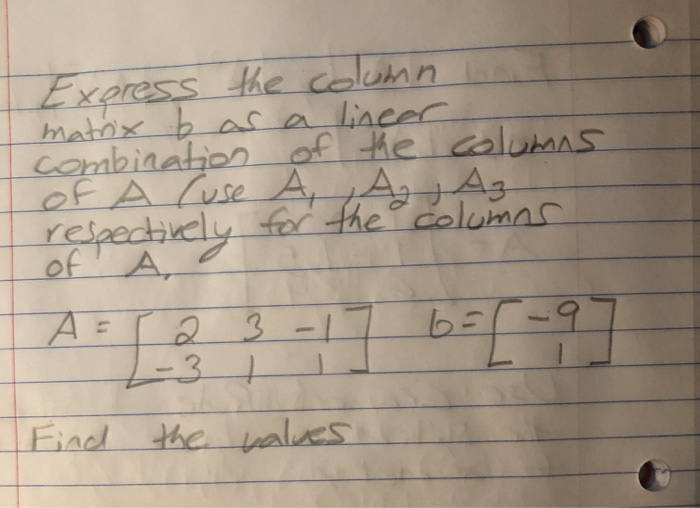 Express the column
matrix b as a linear
combination of the columns
of A (use A1, A2, A3
respectively for the columns
of A.
A = [ 2 3 -1 ] b = [ -9 ]
[ -3 1 1 ] [ 1 ]
Find the values